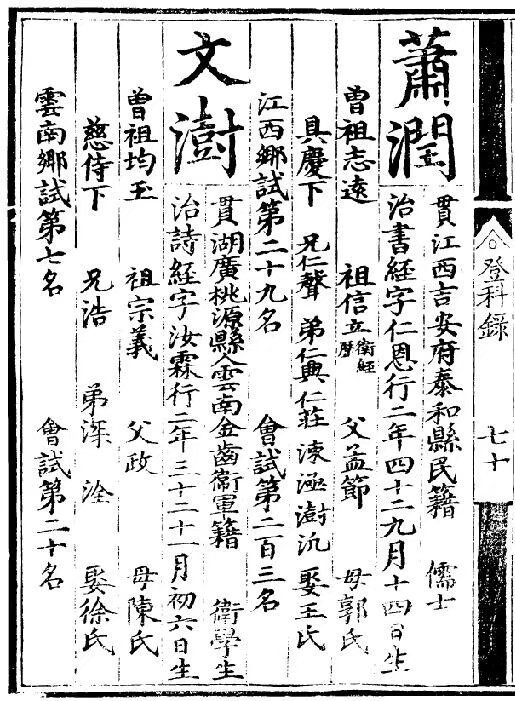 登科録 七十
蕭潤
貫江西吉安府泰和縣民籍 儒士
治書經字仁恩行二年四十二九月十四日生
曾祖志遠 祖信立衛經歷 父孟節 母郭氏
具慶下 兄仁聲 弟仁與仁莊 涷洆澍沉 娶王氏
江西鄉試第二十九名 會試第二百三名
文澍
貫湖廣桃源縣人雲南金齒衛軍籍 衛學生
治詩經字汝霖行二年三十二十一月初六日生
曾祖均玉 祖宗義 父政 母陳氏
慈侍下 兄浩 弟深 淦 娶徐氏
雲南鄉試第七名 會試第二十名